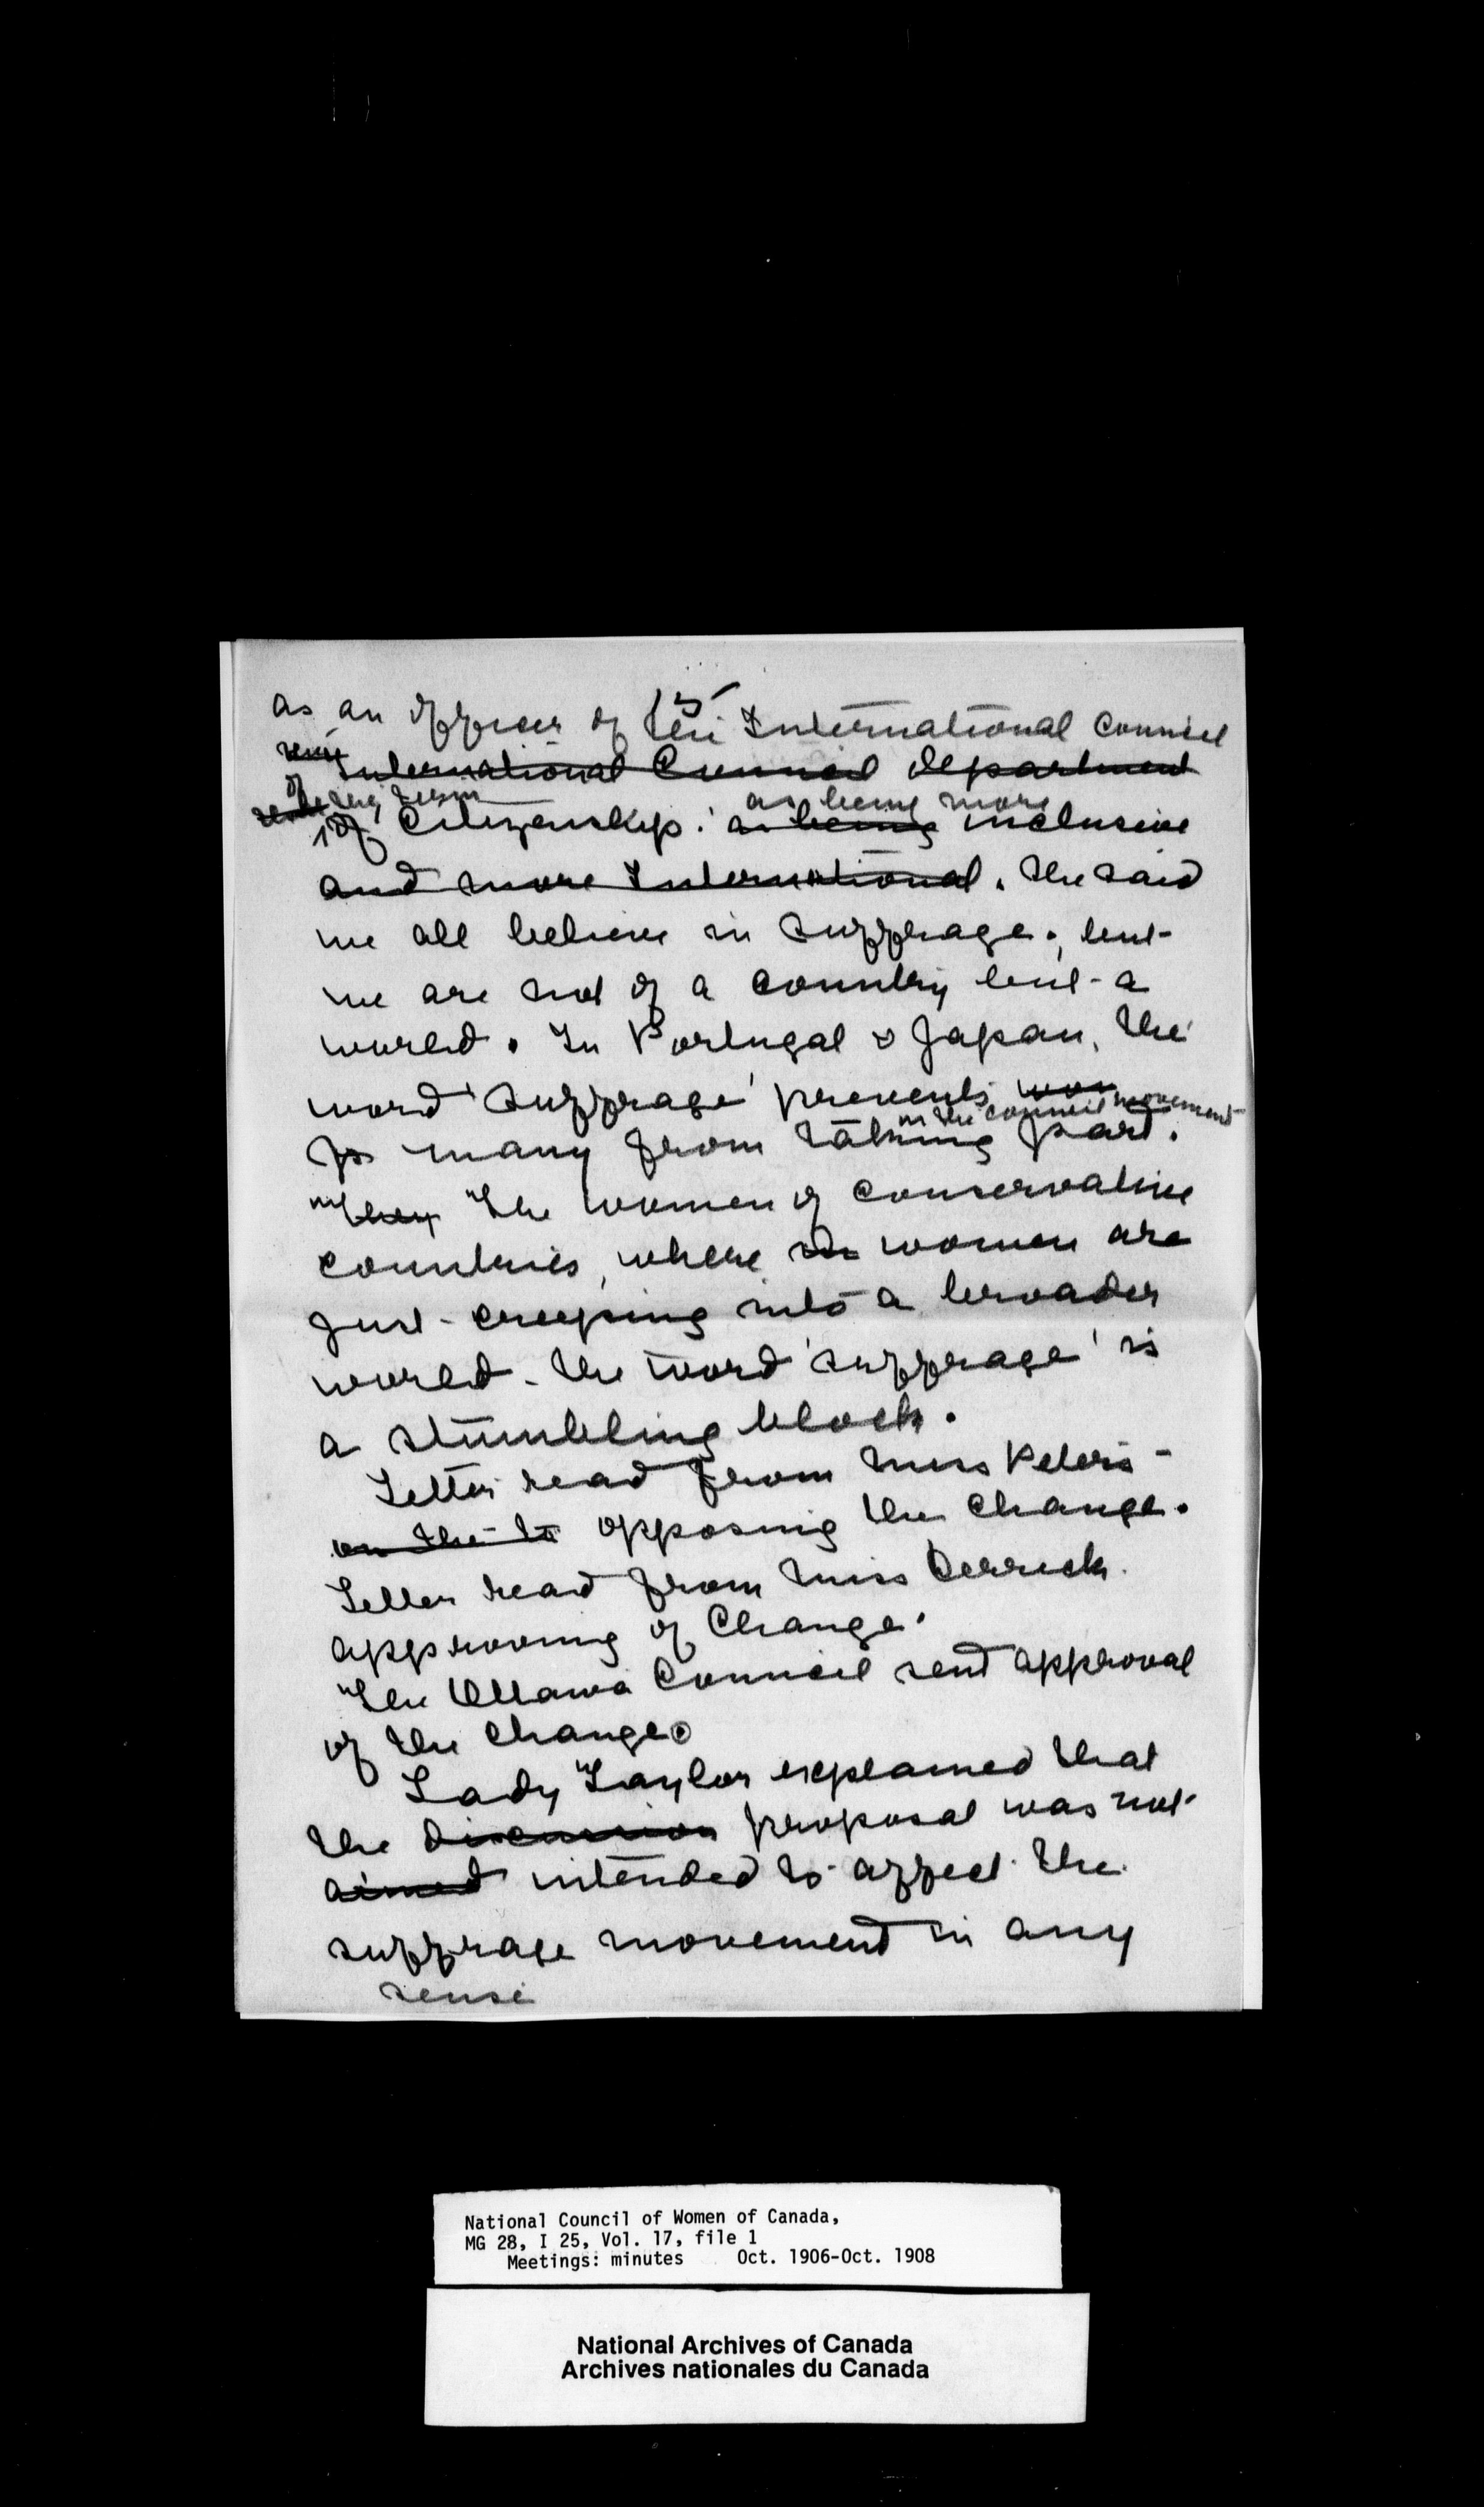 15
as an officer of the International Council
International Council department
of the term as being more
of Citizenship. as being inclusive
and more International. She said
we all believe in suffrage, but
we are not of a country but a
world. In Portugal & Japan, the
word 'suffrage' prevents
in the council movement
many from taking part.
They The women of conservative
countries, where women are
just creeping into a broader
world - the word 'suffrage' is
a stumbling block.
Letter read from Miss Peters -
on the to opposing the change.
Letter read from Miss Derrick
approving of Change.
The Ottawa Council sent approval
of the change.
Lady Taylor explained that
the discussion proposal was not
aimed intended to affect the
suffrage movement in any
sense
National Council of Women of Canada,
MG 28, I 25, Vol. 17, file 1
Meetings: minutes Oct. 1906-Oct. 1908
National Archives of Canada
Archives nationales du Canada